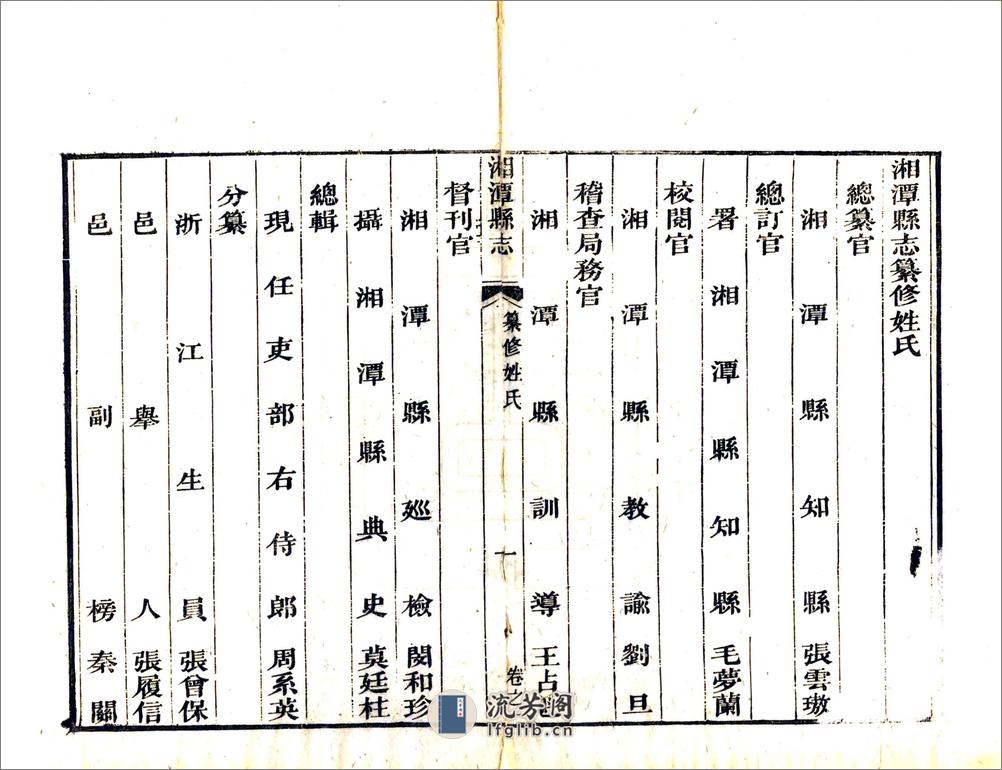 湘潭縣志纂修姓氏
總纂官
湘潭縣知縣張雲璈
總訂官
署湘潭縣知縣毛夢蘭
校閱官
湘潭縣教諭劉旦
稽查局務官
湘潭縣訓導王占
湘潭縣志
纂修姓氏
一
卷之
督刊官
湘潭縣廵檢閔和珍
攝湘潭縣典史莫廷柱
總輯
現任吏部右侍郎周系英
分纂
浙江生員張曾保
邑舉人張履信
邑副榜秦關
流芳阁
lfglib.cn